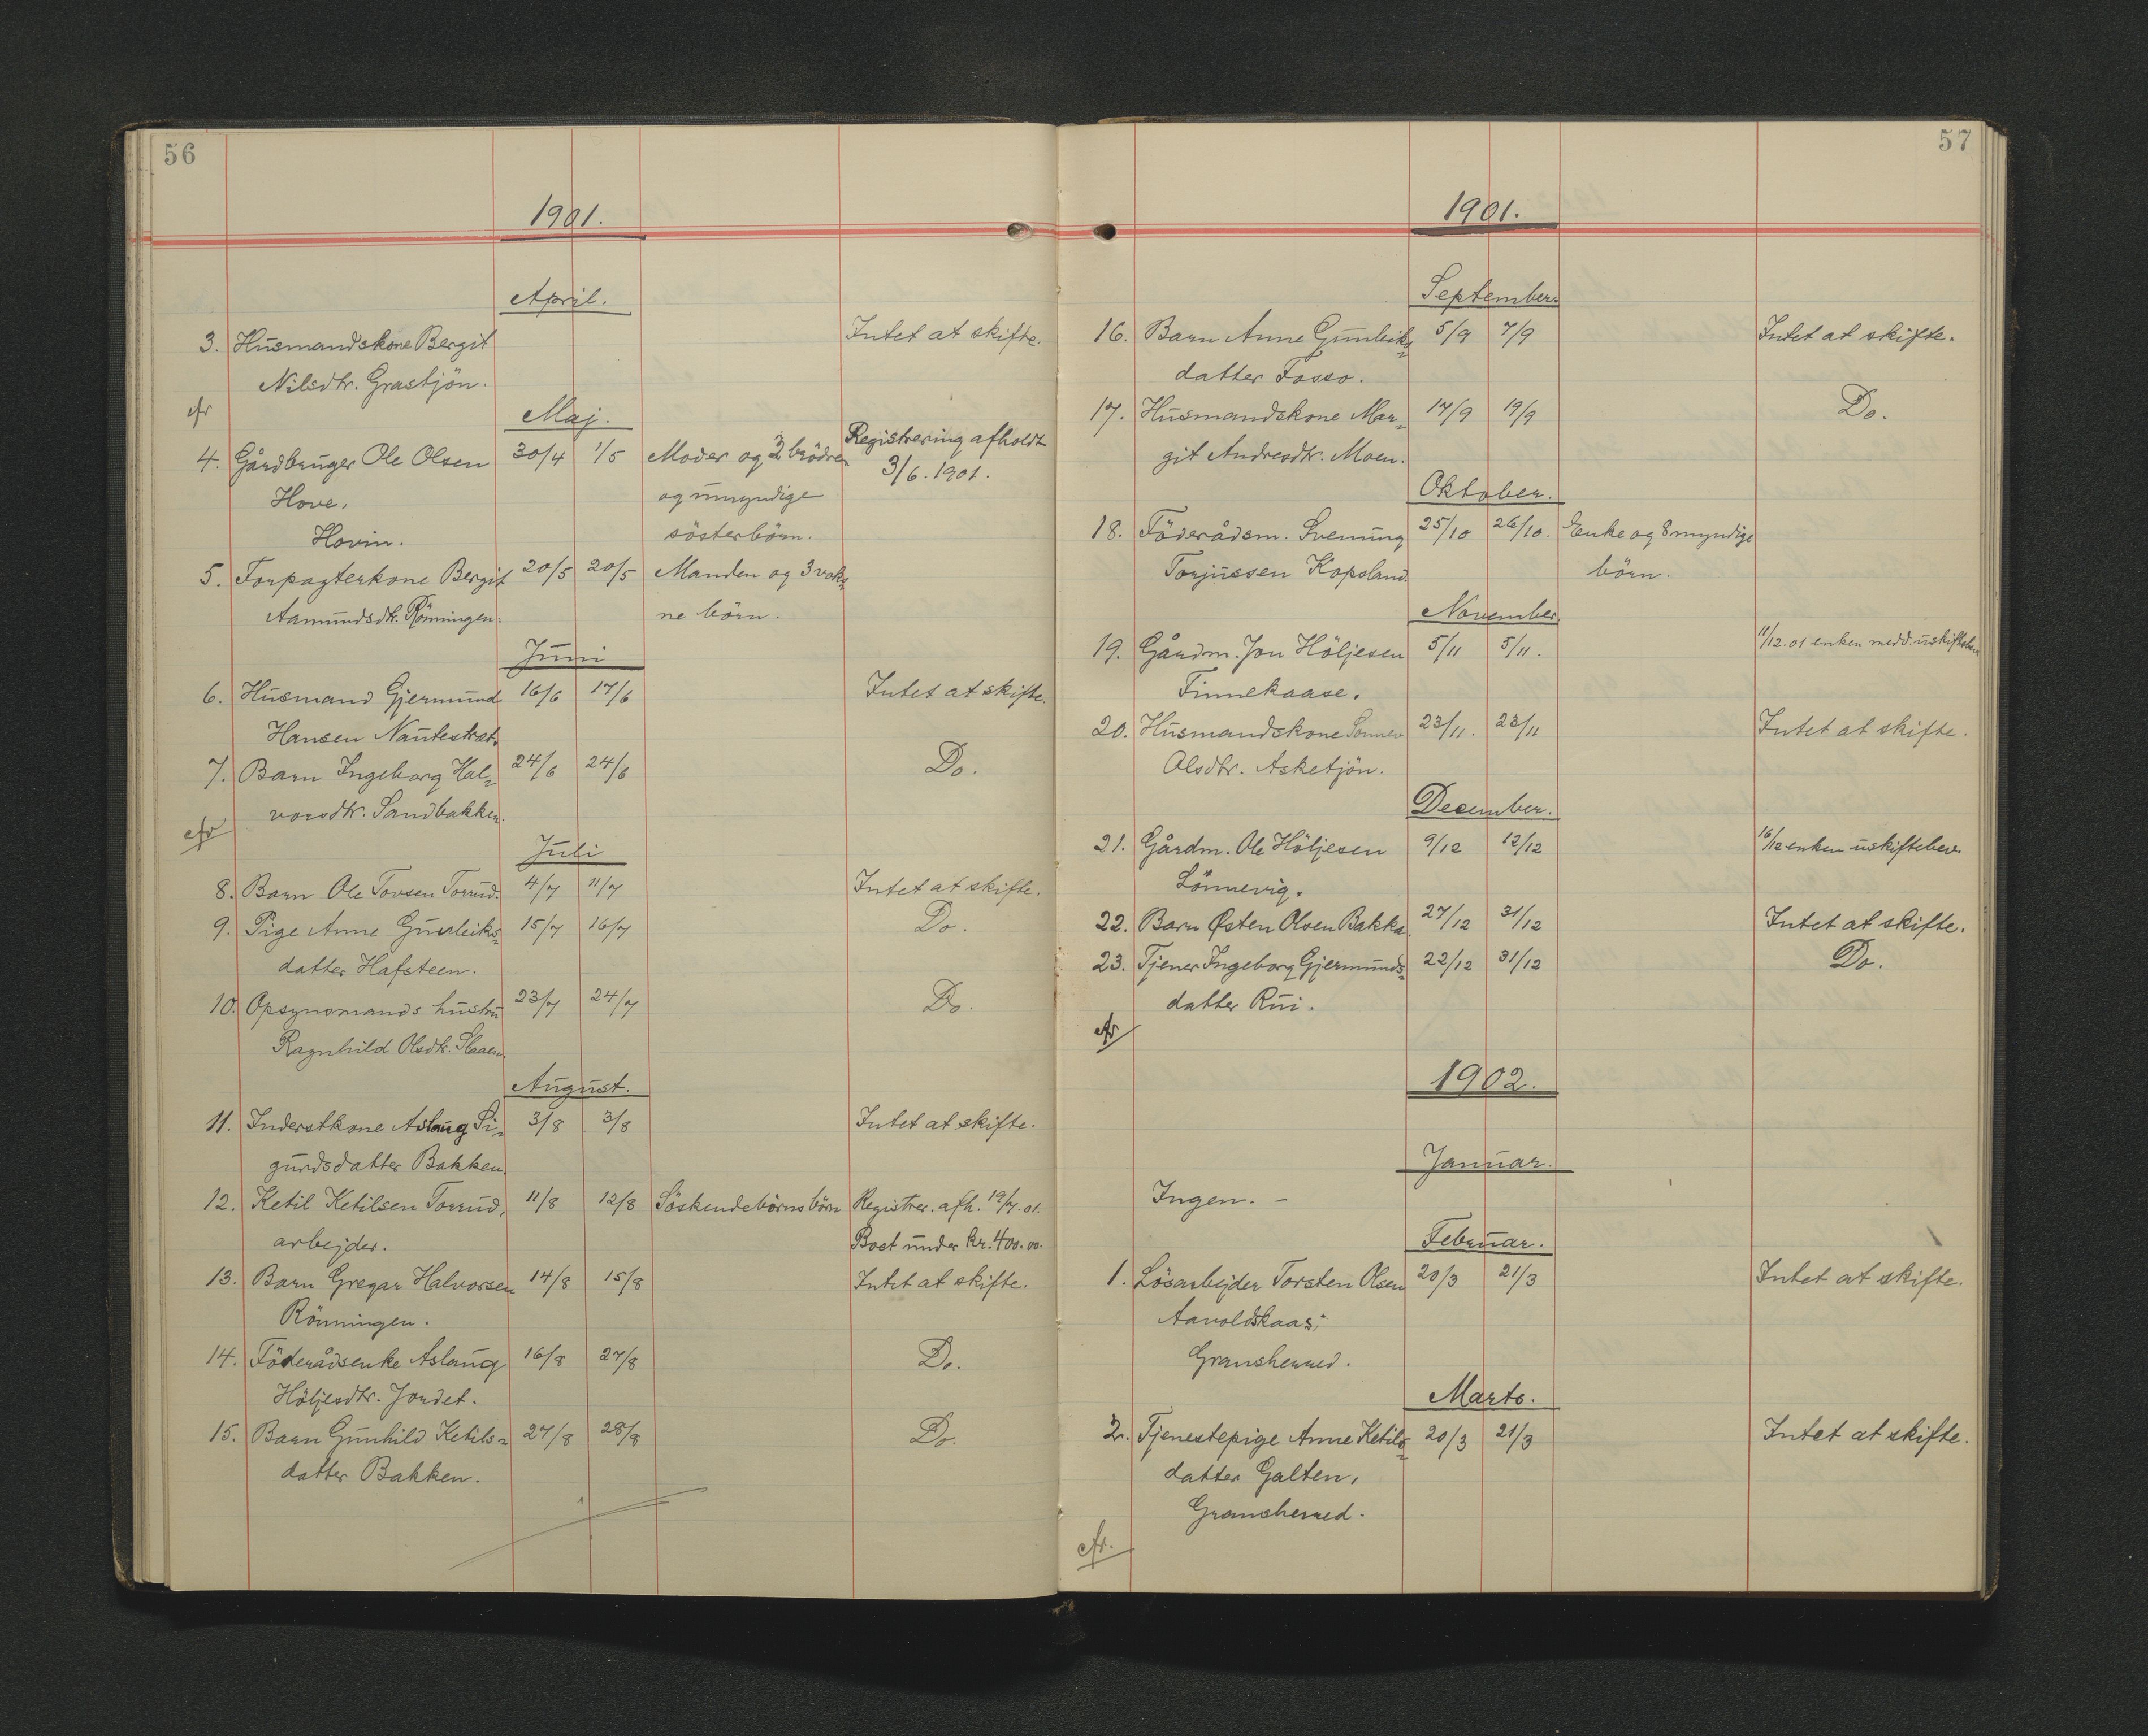 56
1901.
April.
3. Husmandskone Bergit Intet at skifte.
Nilsdtr. Grastjön.
Maj.
4. Gårdbruger Ole Olsen 30/4 1/5 Moder og 2 brödre Registrering afholdt
Hove. og umyndige 3/6. 1901.
Hovin. sösterbörn.
5. Forpagterkone Bergit 20/5 20/5 Manden og 3 voks=
Aamundsdtr. Rönningen. ne börn.
Juni
6. Husmand Gjermund 16/6 17/6 Intet at skifte.
Hansen Nautestræt.
7. Barn Ingeborg Hal= 24/6 24/6 Do.
vorsdtr. Sandbakken.
Juli
8. Barn Ole Tovsen Torrud. 4/7 11/7 Intet at skifte.
9. Pige Anne Gunleiks= 15/7 16/7 Do.
datter Hafsteen.
10. Opsynsmands hustru 23/7 24/7 Do.
Ragnhild Olsdtr. Slaaen.
August.
11. Inderstkone Aslaug Si= 3/8 3/8 Intet at skifte.
gurdsdatter Bakken.
12. Ketil Ketilsen Torrud, 11/8 12/8 Söskendebörns börn Registrer. afh. 19/7. 01.
arbejder. Boet under kr. 400.00.
13. Barn Gregar Halvorsen 14/8 15/8 Intet at skifte.
Rönningen.
14. Föderådsenke Aslaug 16/8 27/8 Do.
Höljesdtr. Jordet.
15. Barn Gunhild Ketils= 27/8 28/8 Do.
datter Bakken.
57
1901.
September.
16. Barn Anne Gunleiks= 5/9 7/9 Intet at skifte.
datter Fosso.
17. Husmandskone Mar= 17/9 19/9 Do.
git Andresdtr. Moen.
Oktober.
18. Föderådsm. Svenung 25/10 26/10. Enke og 8 myndige
Torjussen Kopsland. börn.
November.
19. Gårdm. Jon Höljesen 5/11 5/11. 11/12.01 enken medd. uskiftebev.
Finnekaase.
20. Husmandskone Sonnev 23/11. 23/11 Intet at skifte.
Olsdtr. Asketjön.
December.
21. Gårdm. Ole Höljesen 9/12 12/12 16/12 enken uskiftebev.
Lönnevig.
22. Barn Østen Olsen Bakka. 27/12 31/12 Intet at skifte.
23. Tjener Ingeborg Gjermunds= 22/12 31/12 Do.
datter Rui.
1902.
Januar.
Ingen. -
Februar.
1. Lösarbejder Torsten Olsen 20/3 21/3 Intet at skifte.
Aavoldskaas;
Gransherred.
Marts.
2. Tjenestepige Anne Ketils= 20/3 21/3 Intet at skifte.
datter Galten,
Gransherred.